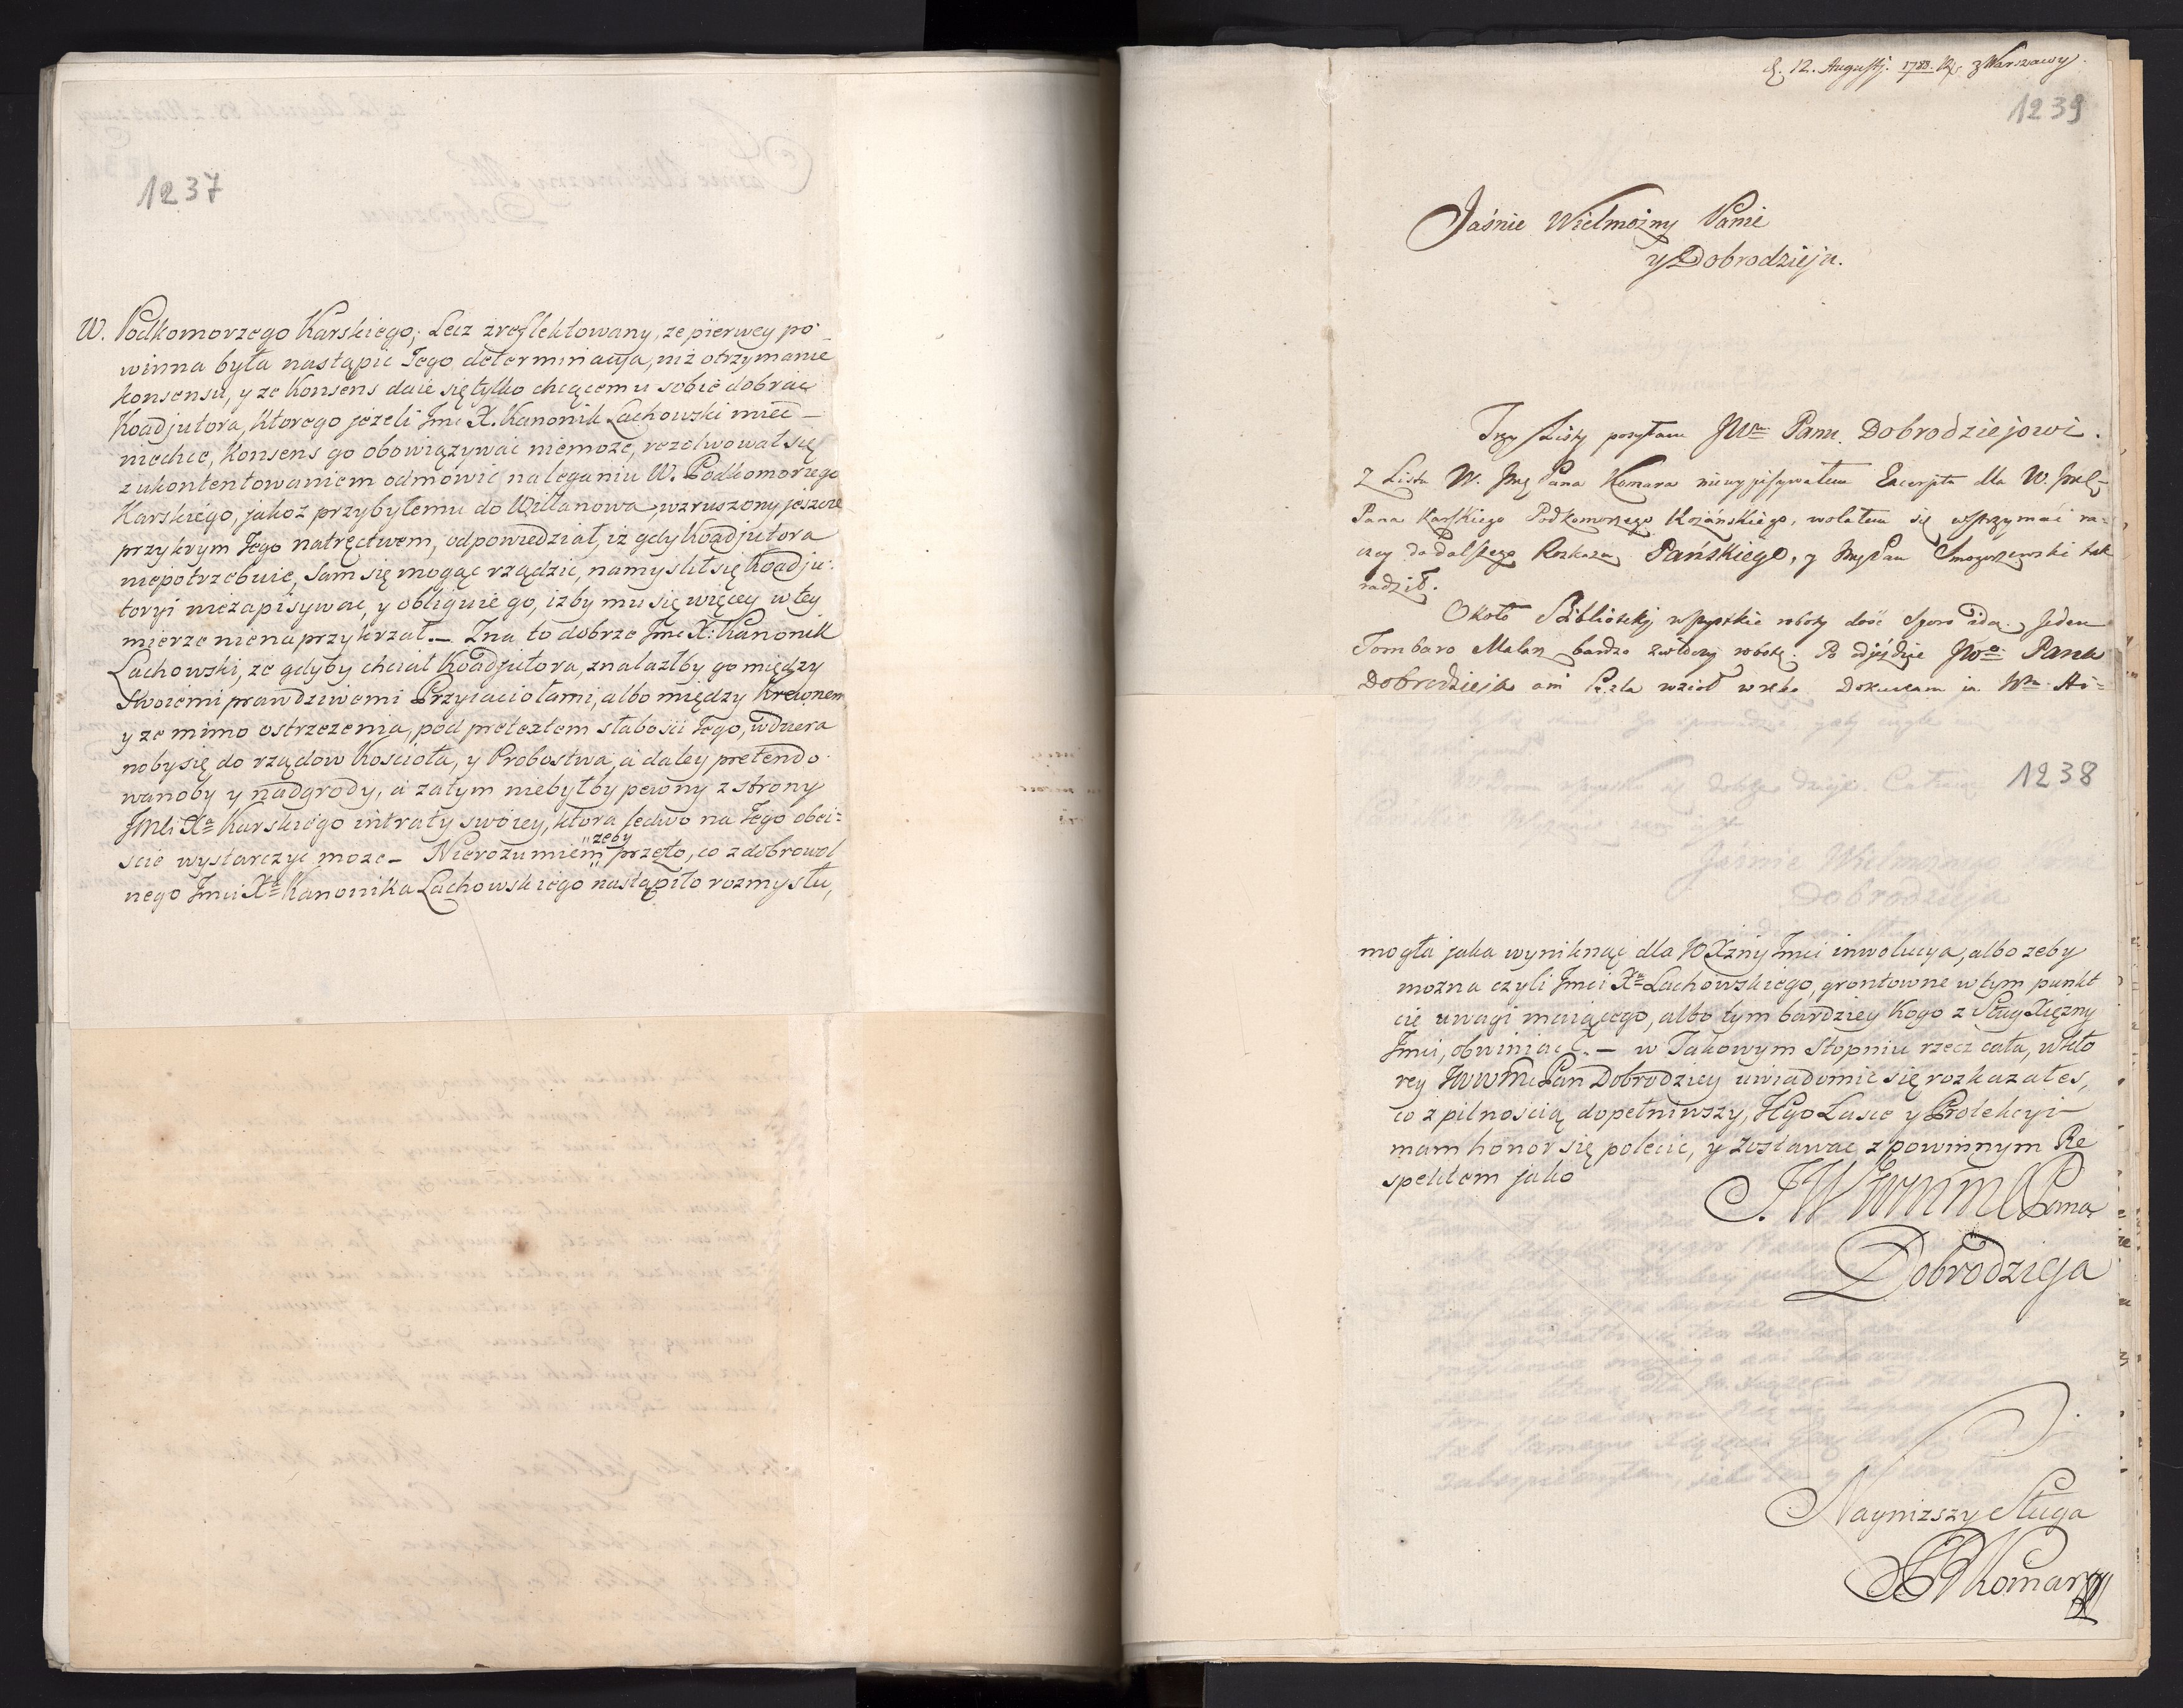 1237
W. Podkomorzego Karskiego; Lecz zreflektowany, ze pierwey po-
winna była nastąpic Jego determinacya, niz otrzymanie
konsensu, y ze Konsens daie się tylko chcącemu sobie dobrac
Koadjutora, ktorego jezeli Jmci X. Kanonik Lachowski miec
niechce, Konsens go obowiązywac niemoze, rezolwował się
z ukontentowaniem odmowic naleganiu W. Podkomorzego
Karskiego, jakoz przybyłemu do Willanowa, wzruszony jeszcze
przykrym Jego natręctwem, odpowiedział, iz gdy Koadjutora
niepotrzebuie, Sam się mogąc rządzic, namyslił się Koadju-
toryi niezapisywac, y obliguie go, izby mu się więcey w tey
mierze nienaprzykrzał. — Zna to dobrze Jmc X: Kanonik
Lachowski, ze gdyby chciał Koadjutora, znalazłby go między
Swoiemi prawdziwemi Przyiaciołami, albo między Krewnem
y ze mimo ostrzezenia, pod pretextem słabosci Jego, wdziera
noby się do rządow Kosciola, y Probostwa, a daley pretendo
wanoby y nadgrody, a zatym niebyłby pewny z strony
Jmci Xa Karskiego intraty swoiey, ktora ledwo na Jego obei=
scie wystarczyc moze — Nierozumiem przeto, co z dobrowol
"zeby
nego Jmci Xa Kanonika Lachowskiego nastąpiło rozmysłu,
d. 12. Augusti. 1788. z Warszawy.
1239
Jaśnie Wielmożny Panie
y Dobrodzieja.
Trzy Listy posyłam JWu Panu Dobrodziejowi.
Z Listu W. Jmć Pana Komara niewypisywałem Excerptu dla W. Jmć
Pana Karskiego Podkomorzego Rożańskiego, wolałem się wstrzymać ra-
czey do dalszego Rozkazu Pańskiego, y Jmć Pan Smogorzewski tak
radził.
Około Biblioteki wszystkie roboty dość sporo idą, Jeden
Tombaro Malarz bardzo zwłóczy robotę. Po odjeździe JWo Pana
Dobrodzieja ani Pęzla wziął w rękę. Dokuczam ja
1238
mogła jaka wyniknąc dla JO Xzny Jmci inwolucya, albo zeby
mozna czyli Jmci Xa Lachowskiego, grontowne w tym punkt
cie uwagi maiącego, albo tym bardziey Kogo z Sług Xięzny
Jmci, obwiniac. — w Takowym Stopniu rzecz cała, w kto
rey JWWMc Pan Dobrodziey uwiadomic się rozkazałes,
co z pilnoscią dopełniwszy, JEgo Łasce y Protekcyi
mam honor się polecic, y zostawac z powinnym Re
spektem jako
J. W Pana
Dobrodzieja
Naynizszy Sługa
Komar